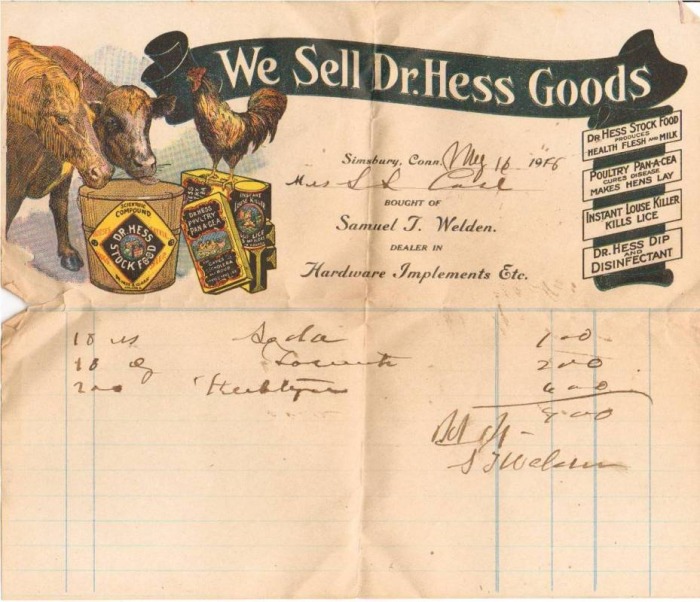 We Sell Dr. Hess Goods
DR. HESS STOCK FOOD
PRODUCES
HEALTH FLESH AND MILK
POULTRY PAN-A-CEA
CURES DISEASE
MAKES HENS LAY
INSTANT LOUSE KILLER
KILLS LICE
DR. HESS DIP
AND
DISINFECTANT
SCIENTIFIC
COMPOUND
DR. HESS
STOCK FOOD
DR. HESS
POULTRY
PAN-A-CEA
Simsbury, Conn. 16 19
Case
BOUGHT OF
Samuel T. Welden.
DEALER IN
Hardware Implements Etc.
10 Soda 1 00
10 2 00
200 6 00
9 00
S T Welden